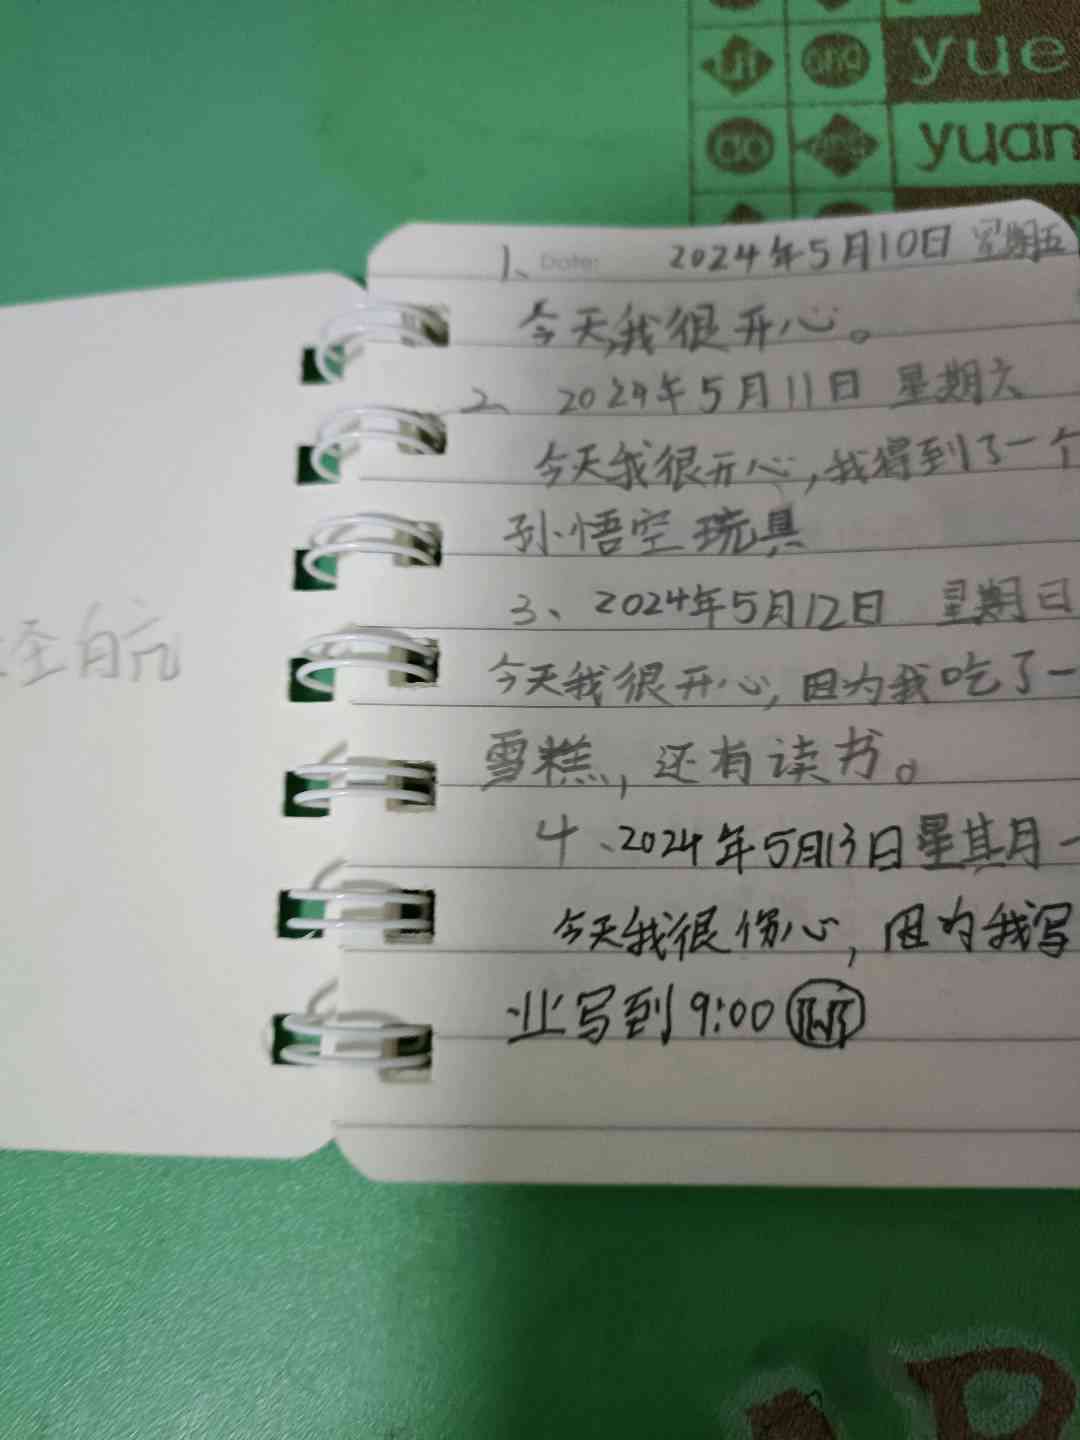 üe ong yue
ao yuan
1、 Date: 2024年5月10日 星期五
今天,我很开心。
2、 2024年5月11日 星期六
今天我很开心,我得到了一个
孙悟空玩具
3、2024年5月12日 星期日
今天我很开心,因为我吃了一
雪糕,还有读书。
4、2024年5月13日星期一
今天我很伤心,因为我写
业写到9:00
航